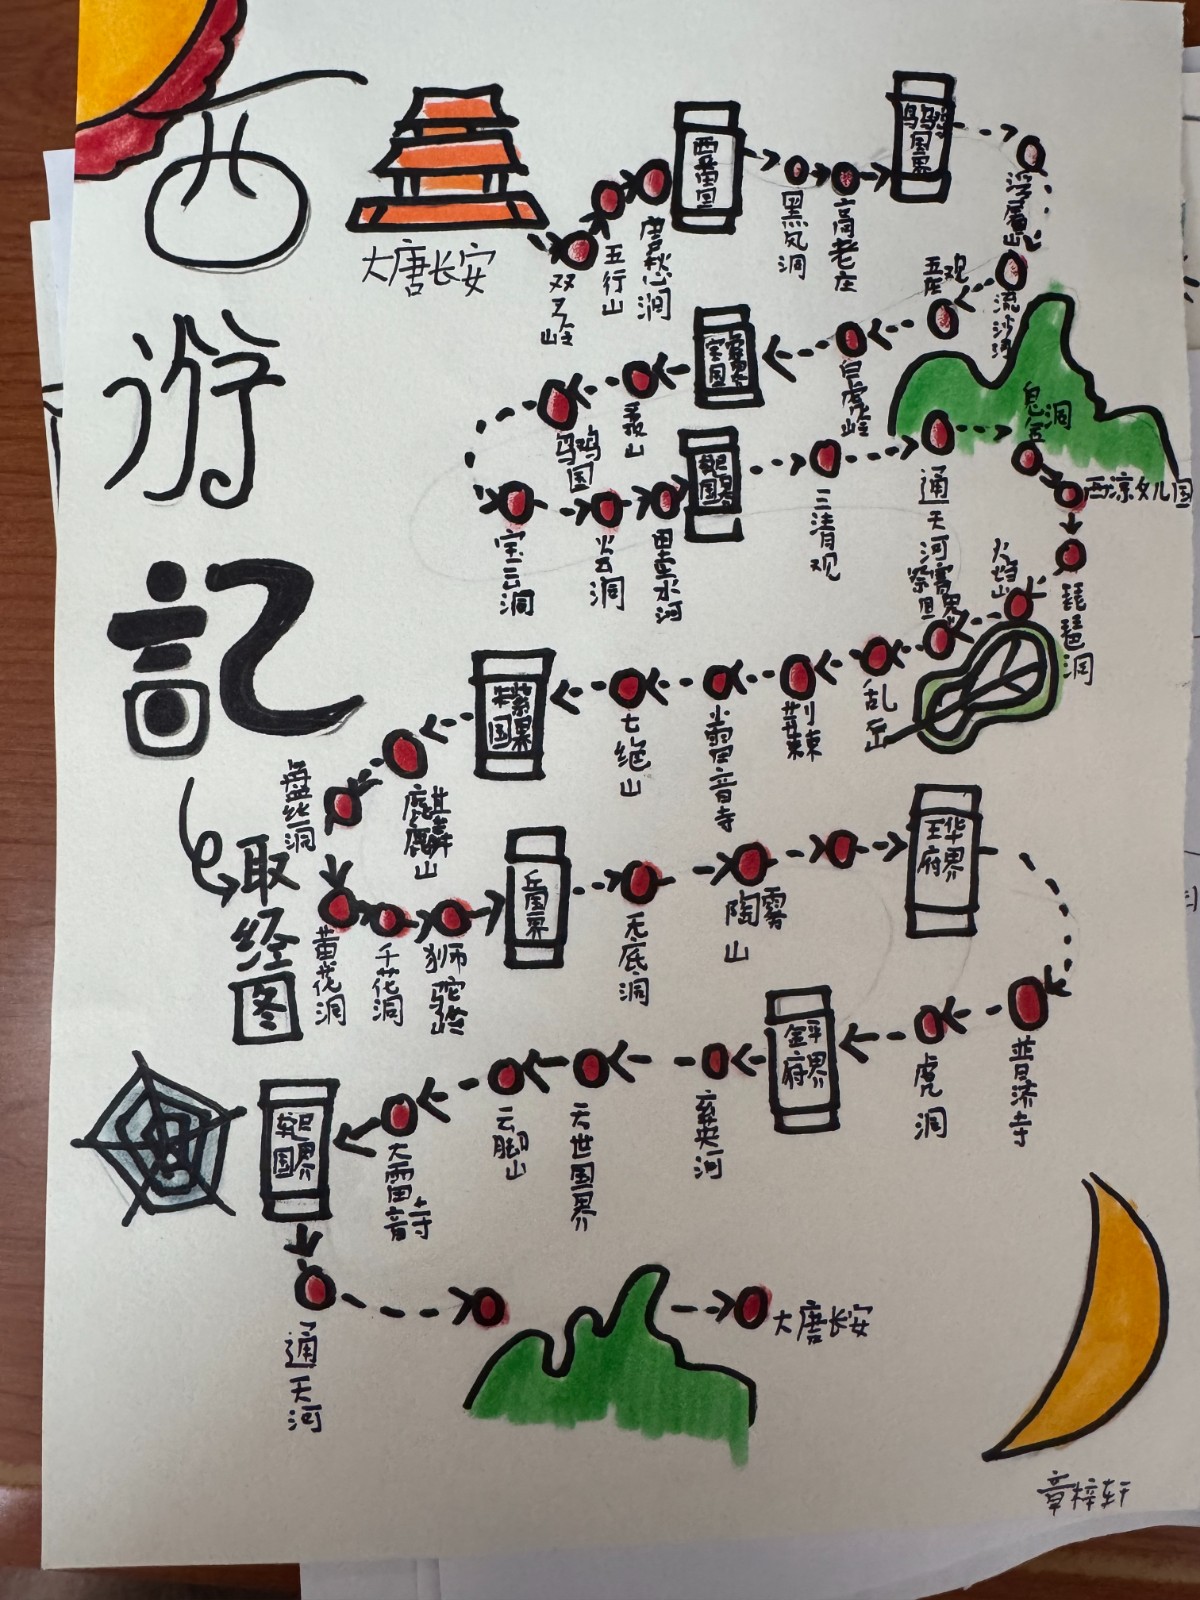 西游記
取经图
大唐长安
双叉岭
五行山
鹰愁涧
西番国
黑风洞
高老庄
乌斯
国界
浮屠山
流沙河
五庄观
白虎岭
宝
国界
山
乌鸡国
宝云洞
火云洞
黑水河
国界
三清观
通天河
洞
西凉女儿国
琵琶洞
火焰山
祭赛国界
乱
荆棘
小雷音寺
七绝山
朱紫国界
麒麟山
盘丝洞
黄花洞
千花洞
狮驼岭
丘国界
无底洞
陶雾山
玉华府界
普济寺
虎洞
金平府界
河
天世国界
云脚山
大雷音寺
国界
通天河
大唐长安
章梓轩